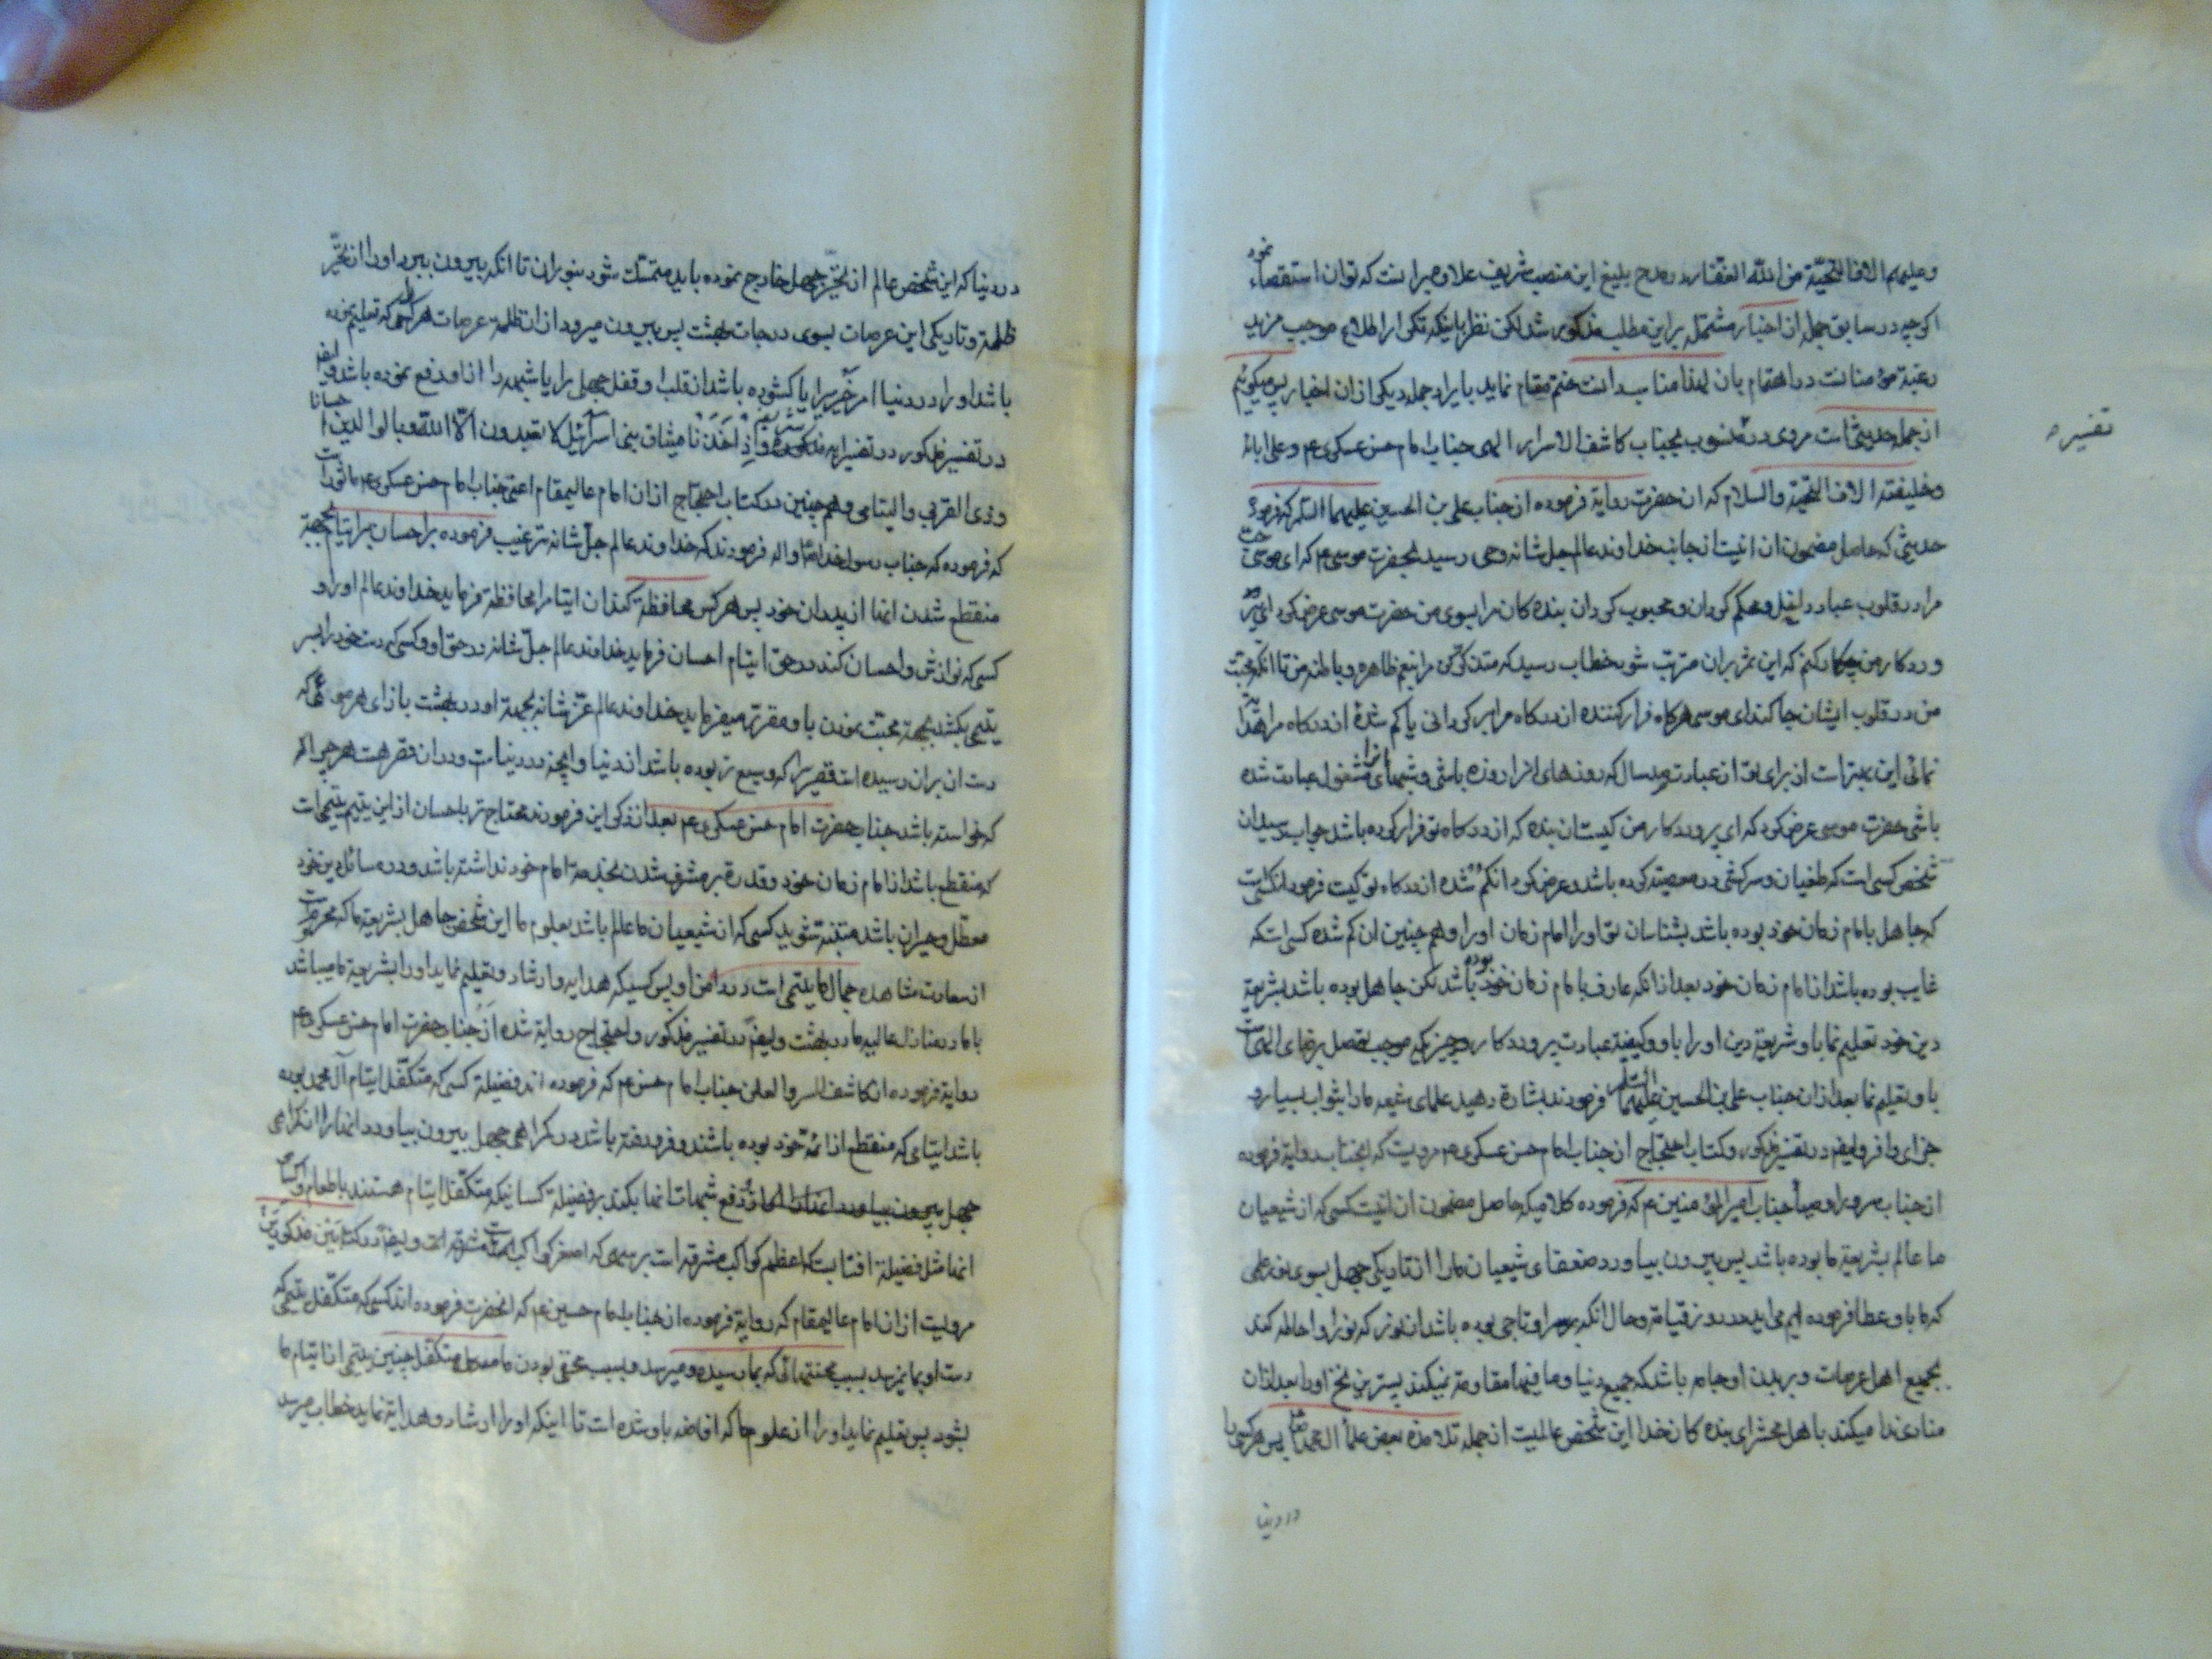 وعلیهم الاف التحیة من الله الغفار در مدح بلیغ این منصب شریف علاوه بر انست که توان استقصاء نمود
اکرچه در سابق جمله از اخبار مشتمل بر این مطلب مذکور شد لکن نظر باینکه تکرار اطلاع موجب مزید
رغبة مؤمنانست در اهتمام بان لهذا مناسب دانست ختم مقام نماید بایراد جمله دیکر از ان اخبار پس میکوئیم
از جمله حدیثی است مروی در تفسیر منسوب بجناب کاشف الاسرار الهی جناب امام حسن عسکری عم وعلی ابائه
وخلیفته الاف التحیة والسلام که ان حضرت روایة فرموده از جناب علی بن الحسین علیهما السلام که فرمود
حدیثی که حاصل مضمون ان اینست از جانب خداوند عالم جل شانه وحی رسید بحضرت موسی عم که ای موسی
مرا در قلوب عباد و محبوب کردان بنده کان مرا بسوی من حضرت موسی عرض کرد ای پر
وردکار من چکار کنم که این ثمر بر ان مترتب شود خطاب رسید که متذکر کن مرا نعم ظاهره و باطنه من تا انکه محبت
من در قلوب ایشان جا کند ای موسی هرکاه فرار کننده از درکاه مرا بر کردانی یا کم شده از درکاه مرا هدایة
نمائی این بهتر است از برای تو از عبادت صد سال که روزهای انرا روزه باشی و شبهای انرا مشغول عبادت شده
باشی حضرت موسی عرض کرد که ای پروردکار من کیست ان بنده که از درکاه تو فرار کرده باشد جواب رسید ان
شخص کسی است که طغیان و سرکشی در معصیت کرده باشد و عرض کرد انکم شده از درکاه تو کیست فرمود انکسیست
که جاهل بامام زمان خود بوده باشد بشناسان تو او را امام زمان او را وهم چنین ان کم شده کسی است که
غایب بوده باشد از امام زمان خود بعد از انکه عارف بامام زمان خود بوده باشد لکن جاهل بوده باشد بشریعة
دین خود تعلیم نما باو شریعة دین او را باو و کیفیة عبادت پروردکار و هر چیز که موجب توصل برضای الهی است
باو تعلیم نما بعد از ان جناب علی بن الحسین علیهما السلام فرمودند بشارة دهید علمای شیعه ما را بثواب بسیار و
جزای وافر وایضا در تفسیر مذکور و کتاب احتجاج از جناب امام حسن عسکری عم مرویست که انجناب روایة فرموده
از جناب سرور اوصیا جناب امیر المؤمنین عم که فرموده کلامیکه حاصل مضمون ان اینست کسی که از شیعیان
ما عالم بشریعة ما بوده باشد پس بیرون بیاورد ضعفای شیعیان ما را از تاریکی جهل بسوی نور علمی
که ما باو عطا فرموده ایم می اید در روز قیامة و حال انکه بر سر او تاجی بوده باشد از نور که نور او احاطه کند
بجمیع اهل عرصات و بر بدن او جامه باشد که جمیع دنیا وما فیها مقاومة نمیکند اورا بعد از ان
منادی ندا میکند باهل محشر ای بنده کان خدا این شخص عالمیست از جمله تلامذه بعض علماء ال محمد پس هر کس را
در دنیا
تفسیر
در دنیا که این شخص عالم از تحیر جهل خارج نموده باید متمسک شود بنور ان تا انکه بیرون ببرد او را از تحیر
ظلمة و تاریکی این عرصات بسوی درجات بهشت پس بیرون میرود از ان ظلمة عرصات هر کسی که تعلیم نموده
باشد او را در دنیا امر خیری را یا کشوده باشد از قلب او قفل جهل را یا شبهه را از او دفع نموده باشد وایضا
در تفسیر مذکور در تفسیر ایه شریفه واذ اخذنا میثاق بنی اسرائیل لا تعبدون الا الله وبالوالدین احسانا
وذی القربی والیتامی وهم چنین در کتاب احتجاج از ان امام عالیمقام اعنی جناب امام حسن عسکری عم ماثور است
که فرموده که جناب رسول خدا ص واله فرمودند که خداوند عالم جل شانه ترغیب فرموده بر احسان بر ایتام بجهة
منقطع شدن انها از پدران خود پس هر کس محافظة کند ان ایتام را محافظة فرماید خداوند عالم او را و
کسی که نوازش و احسان کند در حق ایتام احسان فرماید خداوند عالم جل شانه در حق او و کسی که دست خود را بر سر
یتیمی بکشد بجهة محبت نمودن باو مقرر میفرماید خداوند عالم عز شانه بجهة او در بهشت بازای هر موئی که
دست ان بران رسیده است قصریرا که وسیع تر بوده باشد از دنیا و انچه در دنیا است و در ان قصر هست هر چیز که
که خواسته باشد جناب حضرت امام حسن عسکری عم بعد از ذکر این فرمودند محتاج تر باحسان از این یتیم یتیمی است
که منقطع باشد از امام زمان خود و قدرة بر مشرف شدن بخدمة امام خود نداشته باشد و در مسائل دین خود
معطل و حیران باشد متنبه شوید کسی که از شیعیان ما عالم باشد بعلوم ما این شخص جاهل بشریعة ما که محروم است
از سعادت مشاهده جمال ما یتیمی است در دامن او پس کسیکه هدایة و ارشاد و تعلیم نماید او را بشریعة ما میباشد
با ما در منازل عالیه ما در بهشت وایضا در تفسیر مذکور و احتجاج روایة شده از جناب حضرت امام حسن عسکری عم
روایة فرموده از کاشف السر والعلن جناب امام حسن عم که فرموده اند فضیلة کسی که متکفل ایتام آل محمد بوده
باشد ایتامی که منقطع از ائمه خود بوده باشند و فرو رفته باشد در کمراهی جهل بیرون بیاورد انها را از کمراهی
جهل دفع شبهات انها بکند بر فضیلة کسانیکه متکفل ایتام هستند باطعام و اکساء
انها مثل فضیلة افتابست که اعظم کواکب مشرقه است بر سهی که اصغر کواکب مشرقه است وایضا در کتابین مذکورین
مرویست از ان امام عالیمقام که روایة فرموده از جناب امام حسین عم که انحضرت فرموده اند کسی که متکفل یتیمی که
دست او بما نمیرسد بسبب محنتهائی که بما رسیده و میرسد و بسبب مخفی بودن ما متکفل چنین یتیمی از ایتام ما
بشود پس تعلیم نماید او را از علوم ما که افاضه باو شده است تا اینکه او را ارشاد و هدایة نماید خطاب میرسد